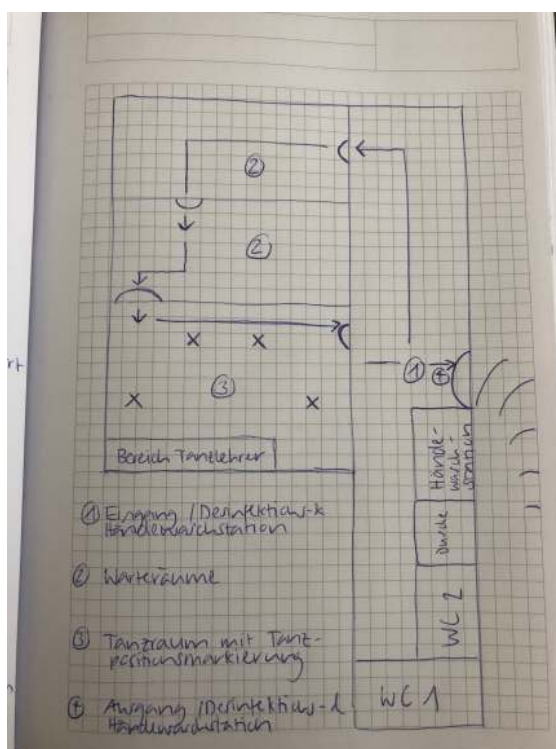 ②
②
③
① ④
Bereich Tanzlehrer
Hände-
wasch-
station
Dusche
WC 2
WC 1
① Eingang / Desinfektions- &
Händewaschstation
② Warteräume
③ Tanzraum mit Tanz-
positionsmarkierung
④ Ausgang / Desinfektions- &
Händewaschstation